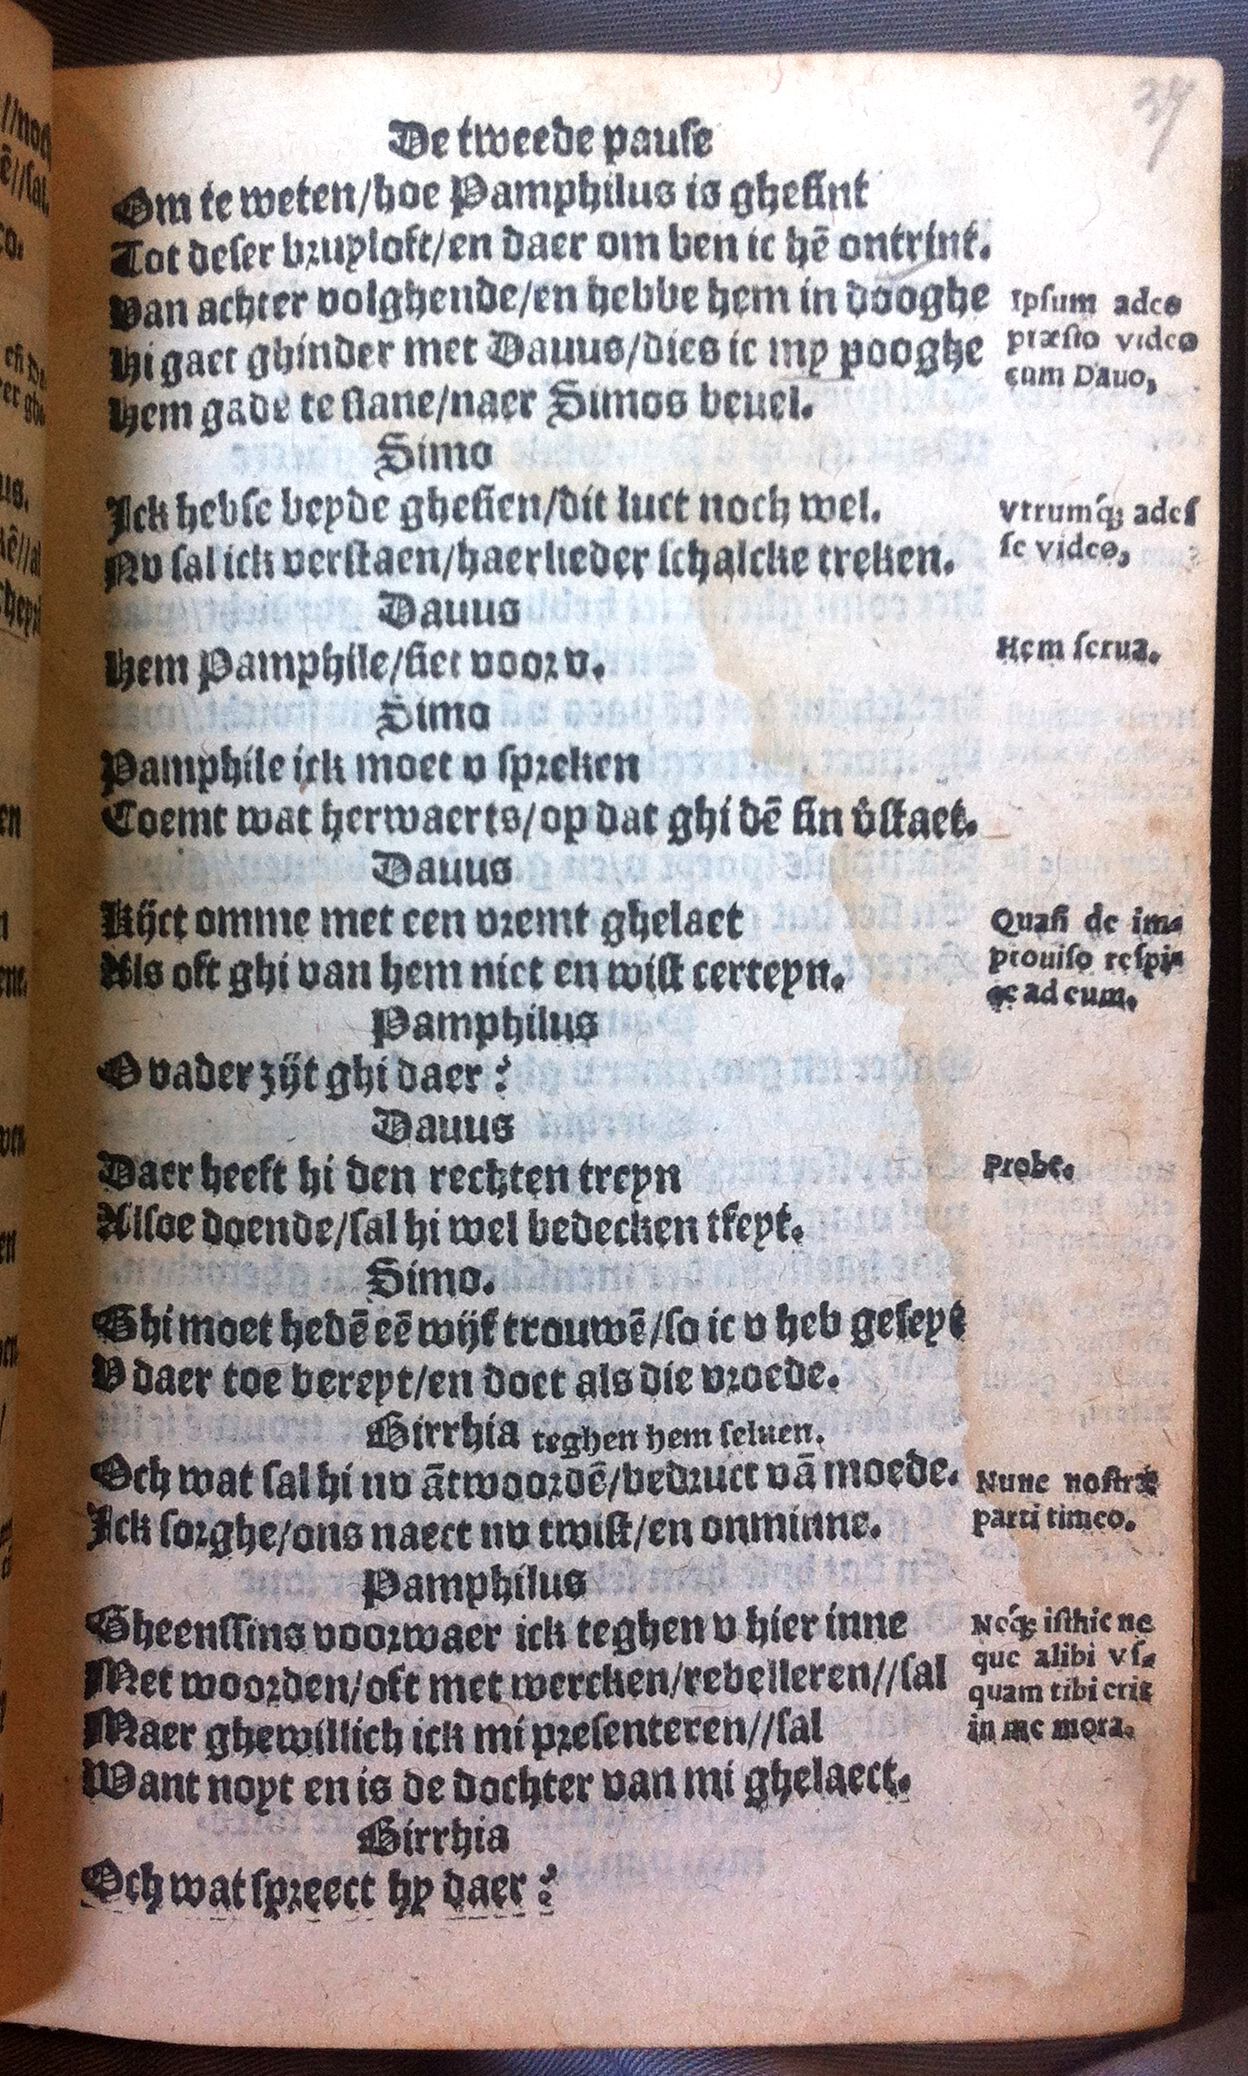 37
De tweede pause
Om te weten/hoe Pamphilus is ghesint
Tot deser bruyloft/en daer om ben ic hē ontrint.
Van achter volghende/en hebbe hem in dooghe
Ipsum adeo
Hi gaet ghinder met Dauus/dies ic my pooghe
præsto video
cum Dauo,
Hem gade te slane/naer Simos beuel.
Simo
Ick hebse beyde ghesien/dit luct noch wel.
Vtrumq́; ades
Nv sal ick verstaen/haerlieder schalcke treken.
se video,
Dauus
Hem Pamphile/siet voor v.
Hem serua.
Simo
Pamphile ick moet v spreken
Coemt wat herwaerts/op dat ghi dē sin v̄staet.
Dauus
Kijct omme met een vremt ghelaet
Quasi de im-
Als oft ghi van hem niet en wist certeyn.
prouiso respi-
ce ad eum.
Pamphilus
O vader zijt ghi daer?
Dauus
Daer heeft hi den rechten treyn
Probe.
Alsoe doende/sal hi wel bedecken tfeyt.
Simo.
Ghi moet hedē eē wijf trouwē/so ic v heb geseyt
V daer toe bereyt/en doet als die vroede.
Birrhia teghen hem seluen.
Och wat sal hi nv ātwoordē/bedruct vā moede.
Nunc nostræ
Ick sorghe/ons naect nv twist/en onminne.
parti timeo.
Pamphilus
Gheenssins voorwaer ick teghen v hier inne
Neq́; isthic ne
Met woorden/oft met wercken/rebelleren//sal
que alibi vs-
quam tibi erit
Maer ghewillich ick mi presenteren//sal
in me mora.
Want noyt en is de dochter van mi ghelaect.
Birrhia
Och wat spreect hy daer?